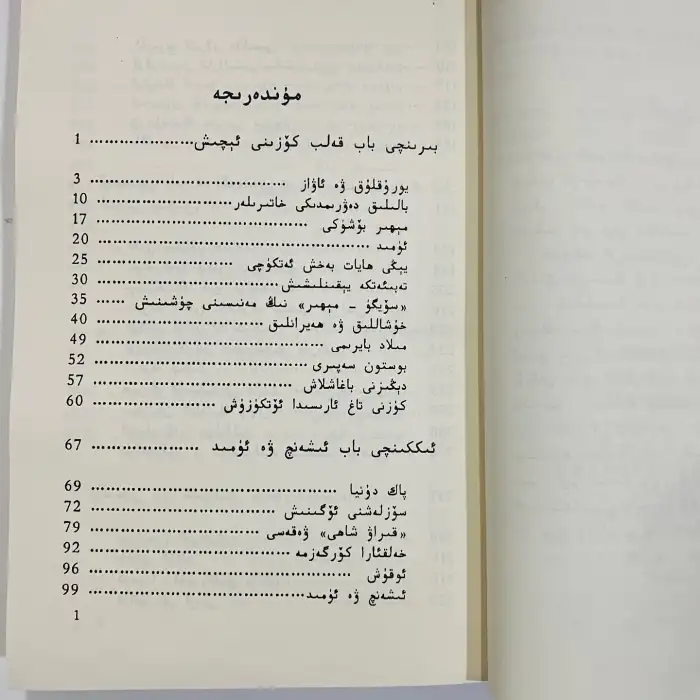 مۇندەرىجە
بىرىنچى باب قەلب كۆزىنى ئېچىش .................... 1
يورۇقلۇق ۋە ئاۋاز .................... 3
باللىق دەۋرىمدىكى خاتىرىلەر .................... 10
مېھىر بۆشۈكى .................... 17
ئۈمىد .................... 20
يېڭى ھايات بەخش ئەتكۈچى .................... 25
تەبىئەتكە يېقىنلىشىش .................... 30
«سۆيگۈ - مېھىر» نىڭ مەنىسىنى چۈشىنىش ...... 35
خۇشاللىق ۋە ھەيرانلىق .................... 40
مىلاد بايرىمى .................... 49
بوستون سەپىرى .................... 52
دېڭىزنى باغاشلاش .................... 57
كۈزنى تاغ ئارىسىدا ئۆتكۈزۈش .................... 60
ئىككىنچى باب ئىشەنچ ۋە ئۈمىد .................... 67
پاك دۇنيا .................... 69
سۆزلەشنى ئۆگىنىش .................... 72
«قىراۋ شاھى» ۋەقەسى .................... 79
خەلقئارا كۆرگەزمە .................... 92
ئوقۇش .................... 96
ئىشەنچ ۋە ئۈمىد .................... 99
1